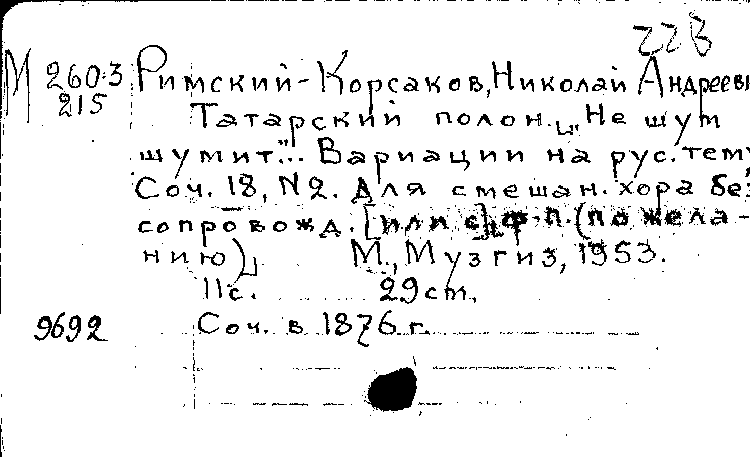 223
М 260-3 Римский-Корсаков, Николай Андрееви
215 Татарский полон. „Не шум
шумит"... Вариации на рус. тему
Соч. 18, N2. Для смешан. хора без
сопровожд. [или с] ф-п. (по жела-
нию) М., Музгиз, 1953.
11с. 29cm.
9692 Соч. в 1876 г.